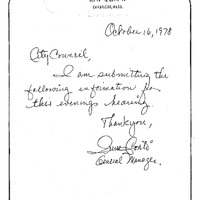 October 16, 1978
City Council,
I am submitting the
following information for
this evenings hearing
Thankyou,
General Manager.